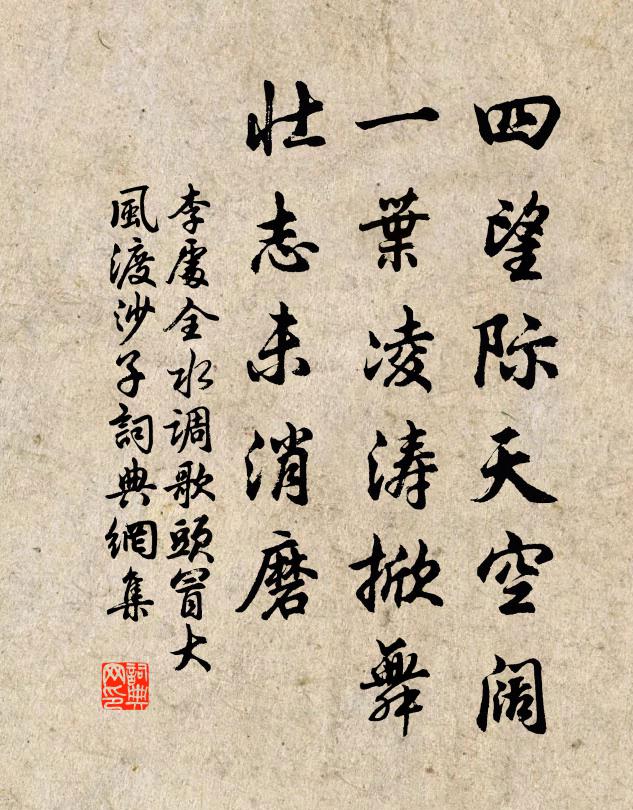 四望际天空阔
一葉凌涛掀舞
壮志未消磨
李處全水调歌頭冒大
風渡沙子詞典網集
詞典网印